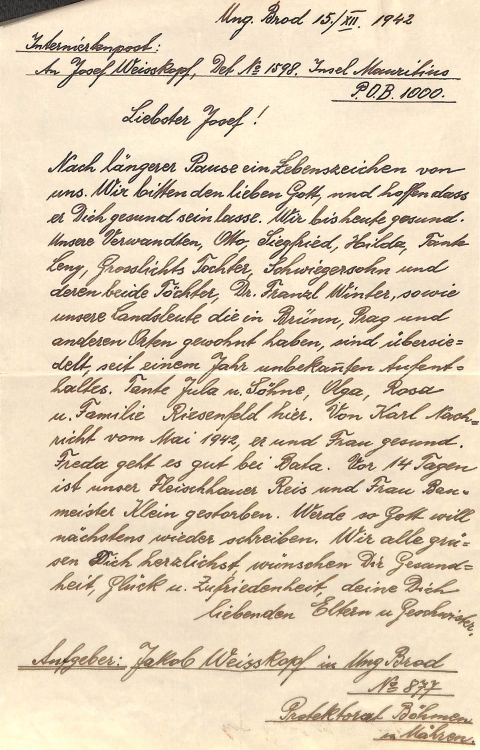 Ung. Brod 15./XII. 1942
Interniertenpost:
An Josef Weisskopf, Det No 1598, Insel Mauritius
P.O.B. 1000.
Liebster Josef!
Nach längerer Pause ein Lebenszeichen von
uns. Wir bitten den lieben Gott, und hoffen dass
er Dich gesund sein lasse. Wir bis heute gesund.
Unsere Verwandten, Otto, Siegfried, Hilda, Tante
Leny, Grosslichts Tochter, Schwiegersohn und
deren beide Töchter, Dr. Franzl Winter, sowie
unsere Landsleute die in Brünn, Prag und
anderen Orten gewohnt haben, sind übersie-
delt, seit einem Jahr unbekannten Aufent-
haltes. Tante Jula u. Söhne, Olga, Rosa
u. Familie Riesenfeld hier. Von Karl Nach=
richt vom Mai 1942, er und Frau gesund.
Freda geht es gut bei Bata. Vor 14 Tagen
ist unser Fleischhauer Reis und Frau Bau-
meister Klein gestorben. Werde so Gott will
nächstens wieder schreiben. Wir alle grü=
sen Dich herzlichst, wünschen Dir Gesund=
heit, Glück u. Zufriedenheit, deine Dich
liebenden Eltern u Geschwister.
Aufgeber: Jakob Weisskopf in Ung Brod
No 877
Protektorat Böhmen
in Mähren.